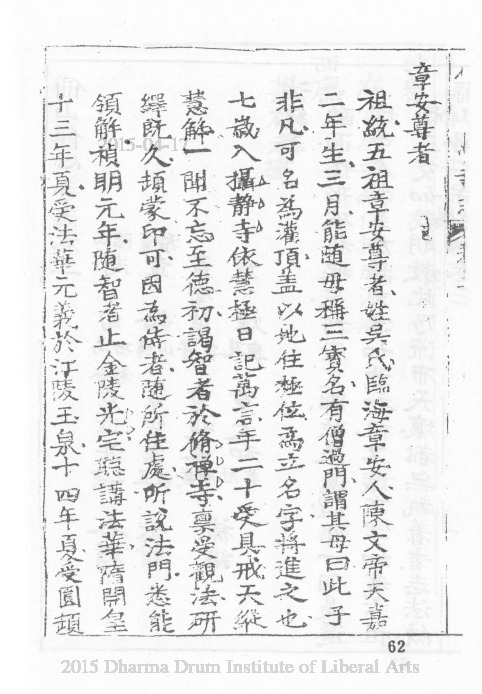 章安尊者
祖統五祖章安尊者姓吳氏臨海章安人陳文帝天嘉
二年生三月能随母稱三寳名有僧過門謂其母曰此子
非凡可名為灌頂盖以地住極位為立名字将進之也
七歲入攝静寺依慧極日記萬言年二十受具戒天縱
慧解一聞不忘至德初謁智者於脩禅寺禀受觀法研
繹既久頓蒙印可因為侍者随所住處所説法門悉能
領解禎明元年随智者止金陵光宅聴講法華隋開皇
十三年夏受法華元義於江陵玉泉十四年夏受圓頓
62
2015-04-17
2015 Dharma Drum Institute of Liberal Arts